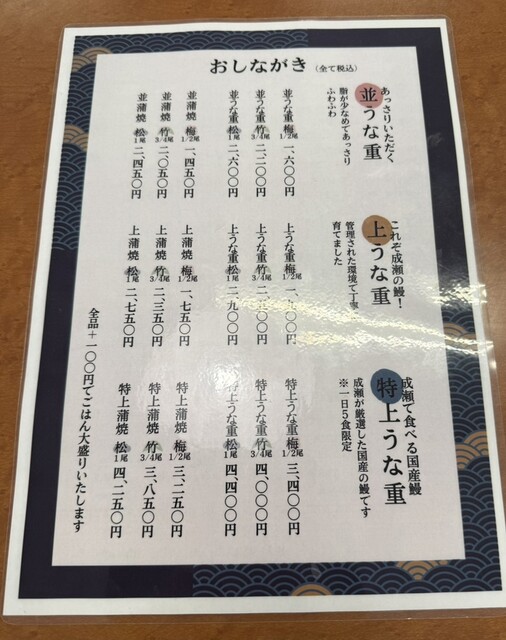 おしながき（全て税込）
あっさりいただく
並うな重
脂が少なめであっさり
ふわふわ
並うな重 梅 1/2尾 一、六〇〇円
並うな重 竹 3/4尾 二、二〇〇円
並うな重 松 1尾 二、六〇〇円
並蒲焼 梅 1/2尾 一、四五〇円
並蒲焼 竹 3/4尾 二、〇五〇円
並蒲焼 松 1尾 二、四五〇円
これぞ成瀬の鰻！
上うな重
管理された環境で丁寧
育てました
上うな重 梅 1/2尾 一、九〇〇円
上うな重 竹 3/4尾 二、五〇〇円
上うな重 松 1尾 二、九〇〇円
上蒲焼 梅 1/2尾 一、七五〇円
上蒲焼 竹 3/4尾 二、三五〇円
上蒲焼 松 1尾 二、七五〇円
成瀬で食べる国産鰻
特上うな重
成瀬が厳選した国産の鰻です
※一日5食限定
特上うな重 梅 1/2尾 三、四〇〇円
特上うな重 竹 3/4尾 四、〇〇〇円
特上うな重 松 1尾 四、四〇〇円
特上蒲焼 梅 1/2尾 三、二五〇円
特上蒲焼 竹 3/4尾 三、八五〇円
特上蒲焼 松 1尾 四、二五〇円
全品＋一〇〇円でごはん大盛りいたします